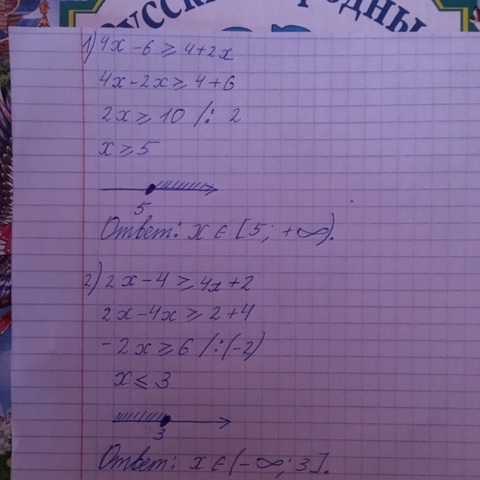 РУССК РОДНЫ
1) 4x - 6 ≥ 4 + 2x
4x - 2x ≥ 4 + 6
2x ≥ 10 /: 2
x ≥ 5
5
Ответ: x ∈ [5; +∞).
2) 2x - 4 ≥ 4x + 2
2x - 4x ≥ 2 + 4
-2x ≥ 6 /:(-2)
x ≤ 3
3
Ответ: x ∈ (-∞; 3].